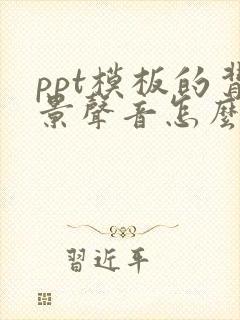 ppt模板的
景聲音怎麼
習近平